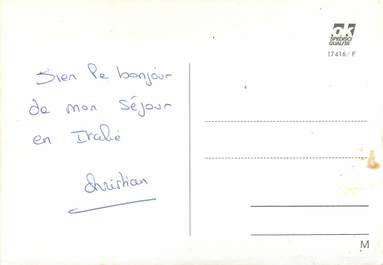 Bien le bonjour
de mon séjour
en Italie
Christian
OK
SPEDISCI
QUALITÀ!
17416/F
M